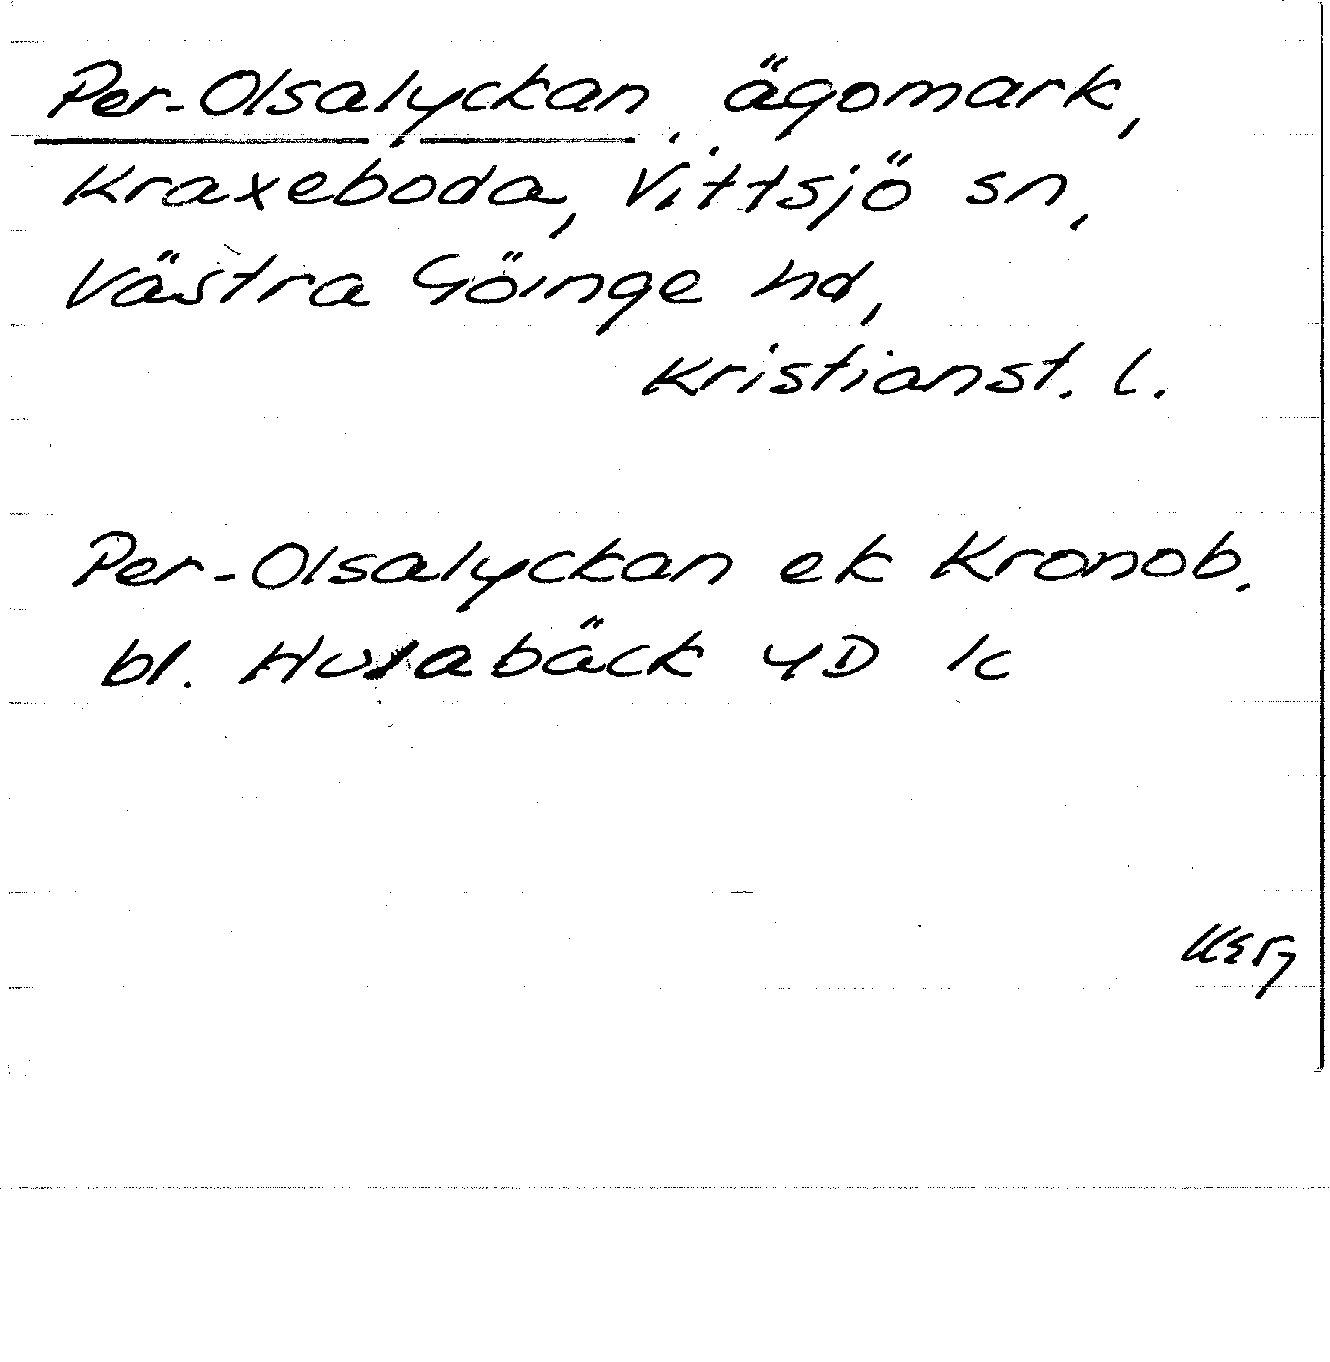 Per-Olsalyckan, ägomark,
Kraxeboda, Vittsjö sn,
Västra Göinge hd,
Kristianst. l.
Per-Olsalyckan ek Kronob.
bl. Hulabäck 4D 1c